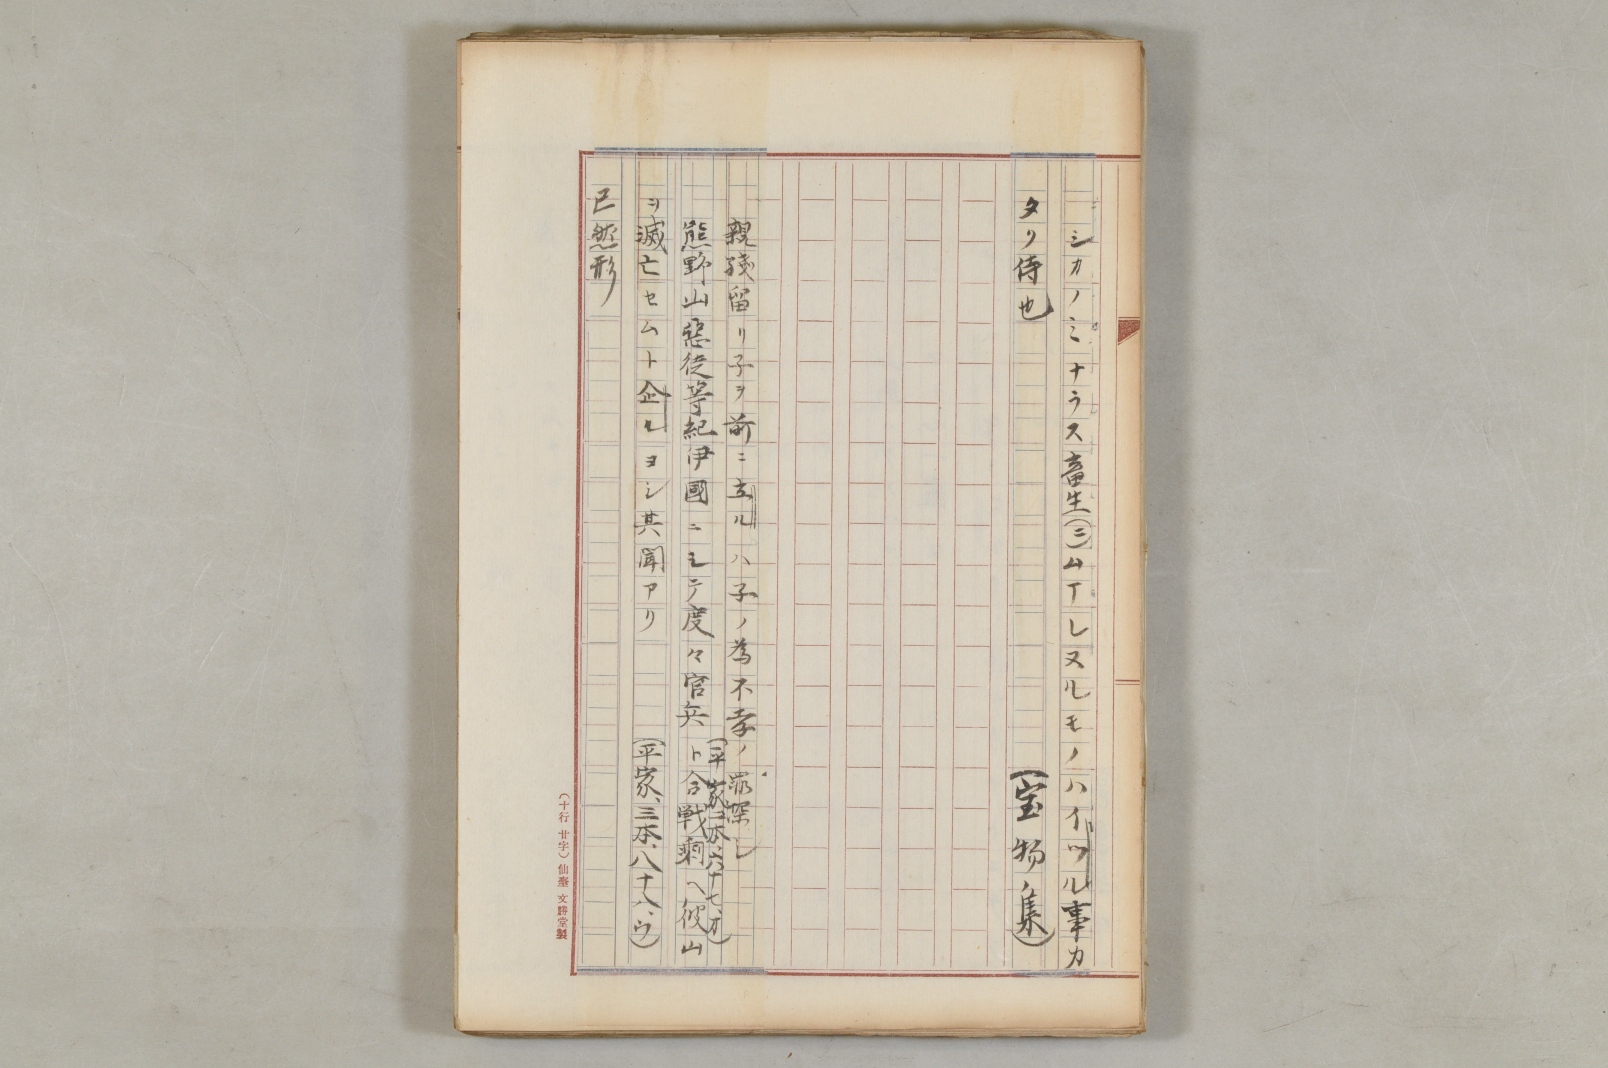 シカノミナラス畜生(ニ)ムマレヌルモノハイツル事カ
タリ侍也　(宝物集)
親残留リ子ヲ前ニ立ルハ子ノ為不孝ノ罪深シ
(平家、二本、六十七、オ)
熊野山惡徒等紀伊國ニシテ度々官兵ト合戦剰ヘ彼山
ヲ滅亡セムト企ルヨシ其聞アリ　(平家、三本、八十八、ウ)
已然形
(十行 廿字) 仙臺 文勝堂製